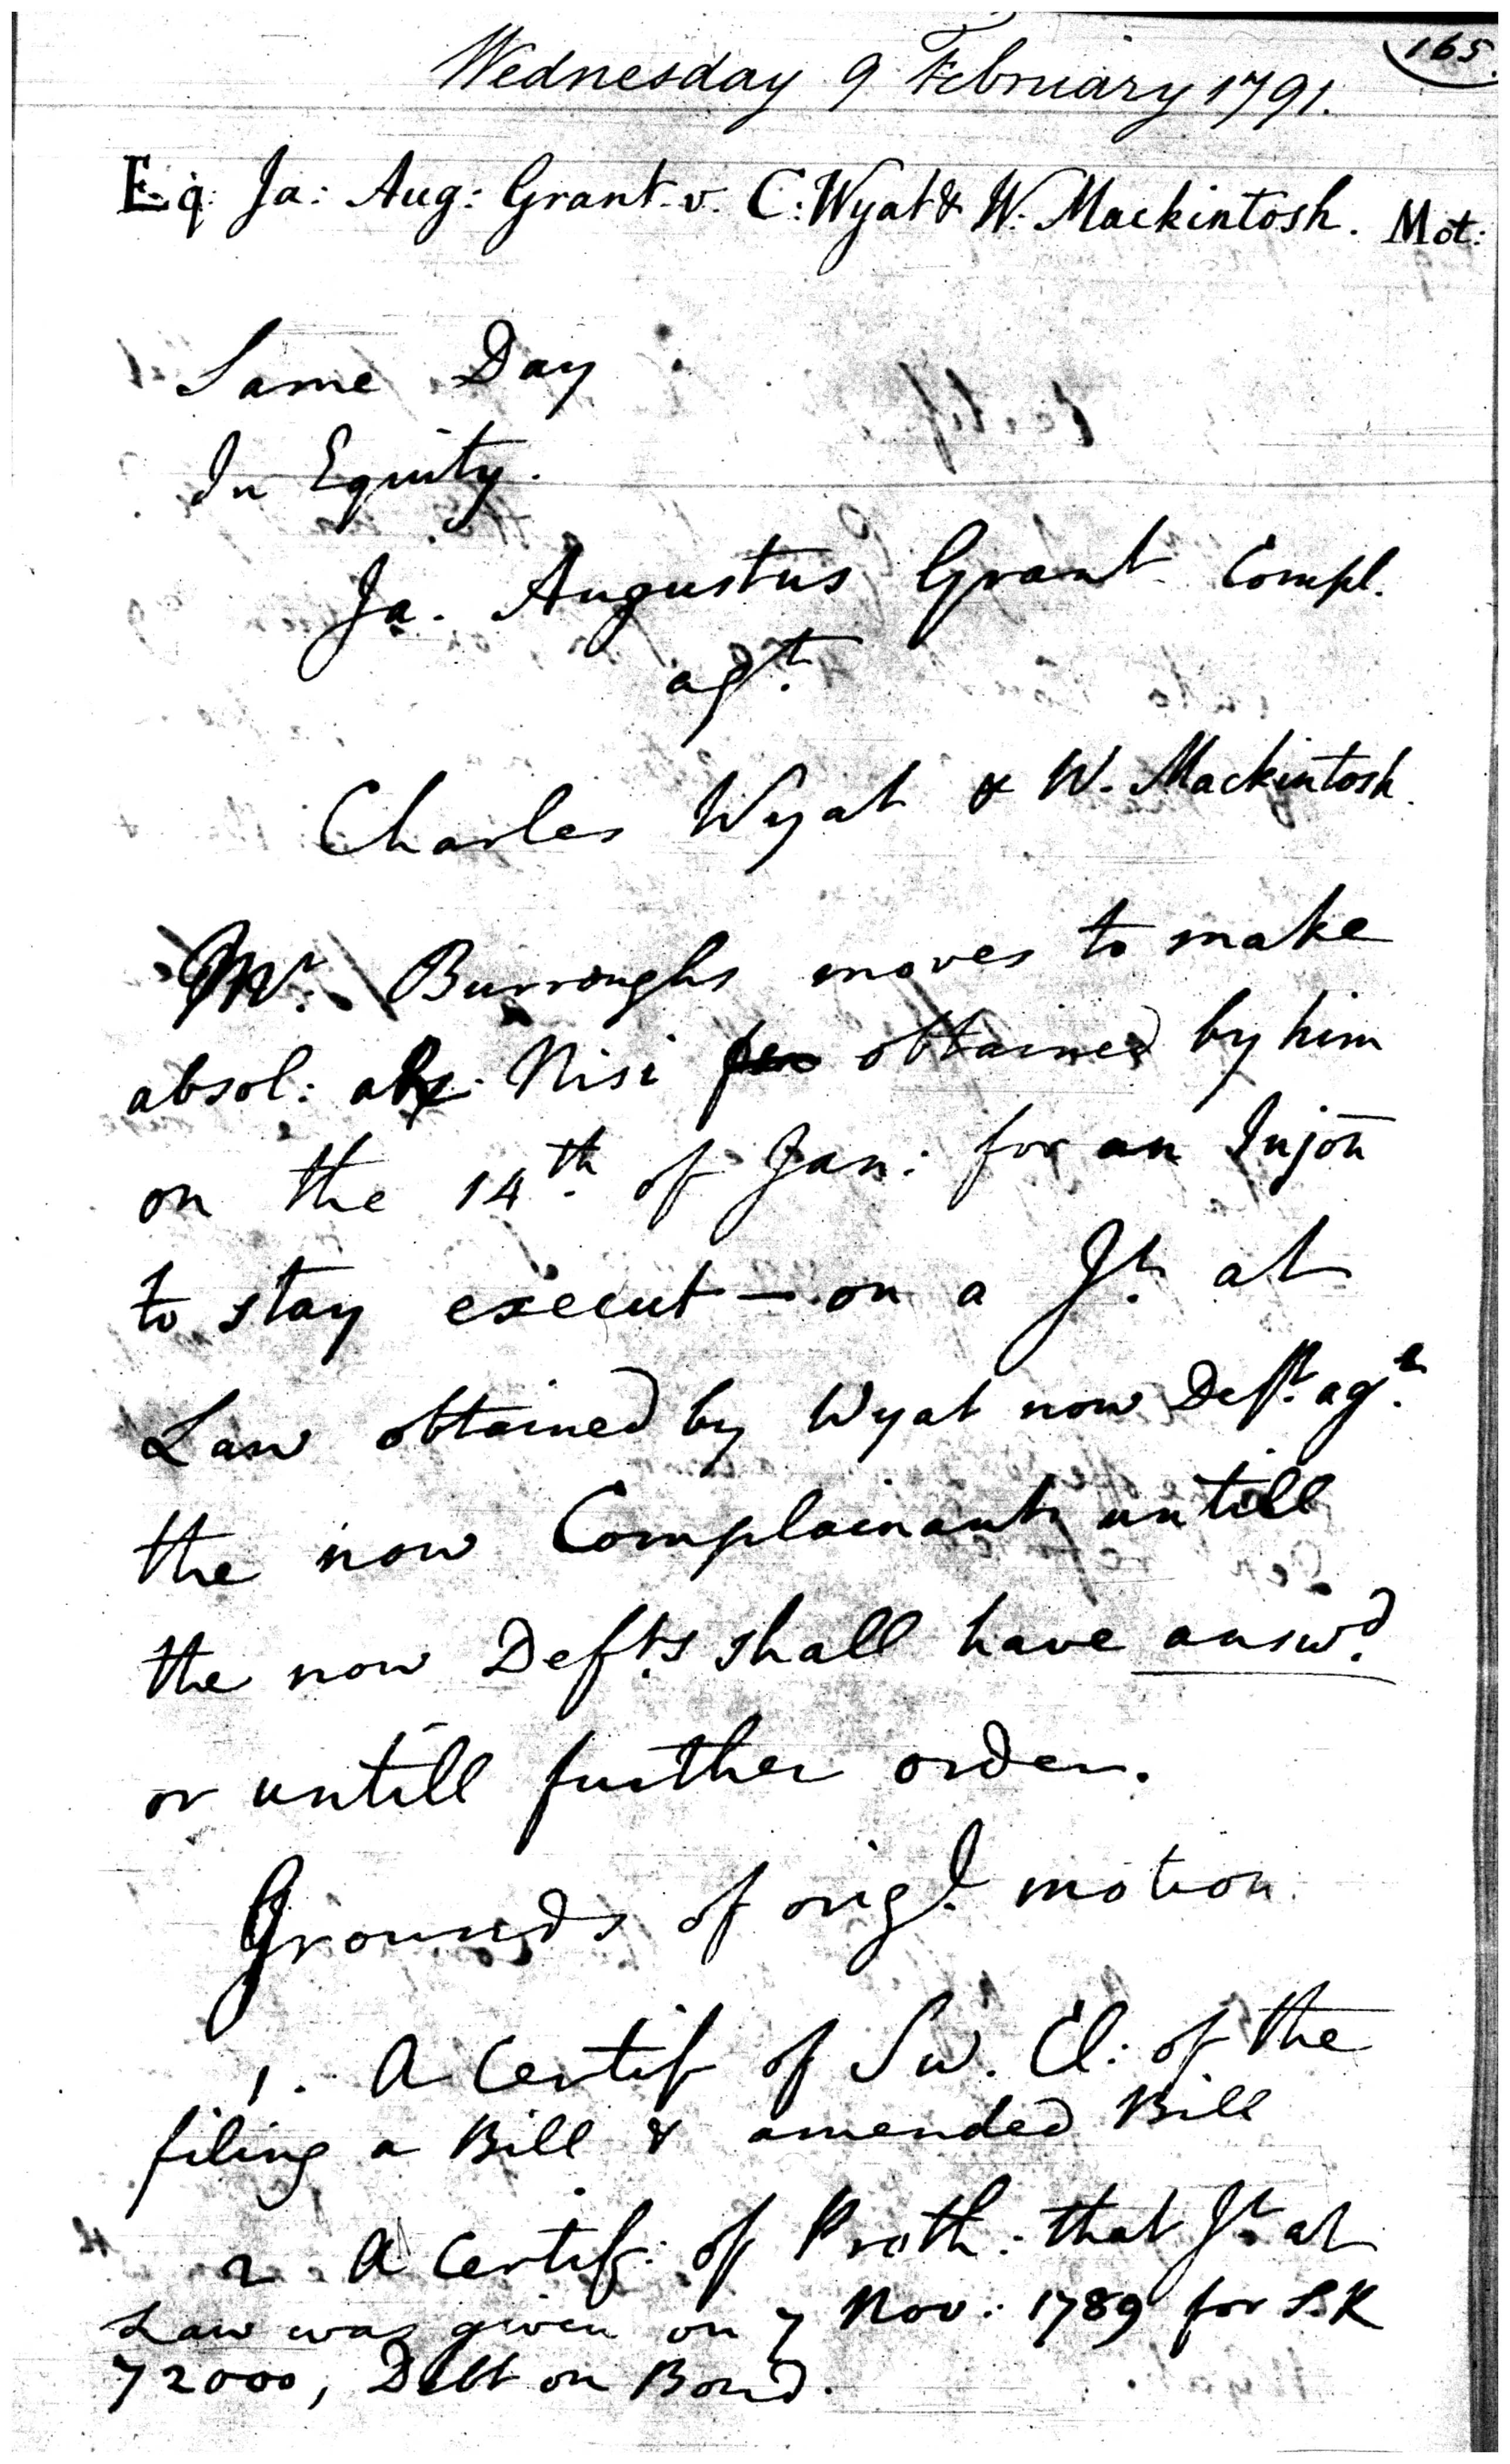 165.
Wednesday 9 February 1791.
Eq: Ja: Aug: Grant v. C: Wyat & W. Mackintosh. Mot:
Same Day
In Equity.
Ja. Augustus Grant Compl.
agt.
Charles Wyat & W. Mackintosh.
Mr. Burroughs moves to make
absol: Nisi obtained by him
on the 14th. of Jan: for an Injon
to stay execut— on a Jt. at
Law obtained by Wyat now Deft. agt.
the now Complainant untill
the now Defts. shall have answd.
or untill further order.
Grounds of origl. motion.
1. A Certif of Sw. Cl: of the
filing a Bill & amended Bill
2 A Certif: of Proth: that Jt. at
Law was given on 7 Nov: 1789 for S.R
72000, Debt on Bond.